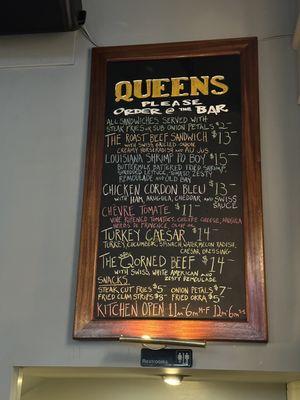 QUEENS
PLEASE
ORDER @ THE BAR
ALL SANDWICHES SERVED WITH
STEAK FRIES OR SUB ONION PETALS $2-
THE ROAST BEEF SANDWICH $13-
WITH SWISS, GRILLED ONION,
CREAMY HORSERADISH AND AU JUS
LOUISIANA SHRIMP PO BOY $15-
BUTTERMILK BATTERED FRIED SHRIMP,
SHREDDED LETTUCE, TOMATO, ZESTY
REMOULADE AND OLD BAY
CHICKEN CORDON BLEU $13-
WITH HAM, ARUGULA, CHEDDAR AND SWISS
SAUCE
CHÈVRE TOMATE $11-
VINE RIPENED TOMATOES, CHÈVRE CHEESE, ARUGULA
HERBS DE PROVENCE, OLIVE OIL
TURKEY CAESAR $14-
TURKEY, CUCUMBER, SPINACH, WATERMELON RADISH,
CAESAR DRESSING
THE QORNED BEEF $14-
WITH SWISS, WHITE AMERICAN AND
ZESTY REMOULADE
SNACKS
STEAK CUT FRIES $5- ONION PETALS $7-
FRIED CLAM STRIPS $8- FRIED OKRA $5-
KITCHEN OPEN 11AM-6PM M-F 12PM-6PM
RESTROOMS